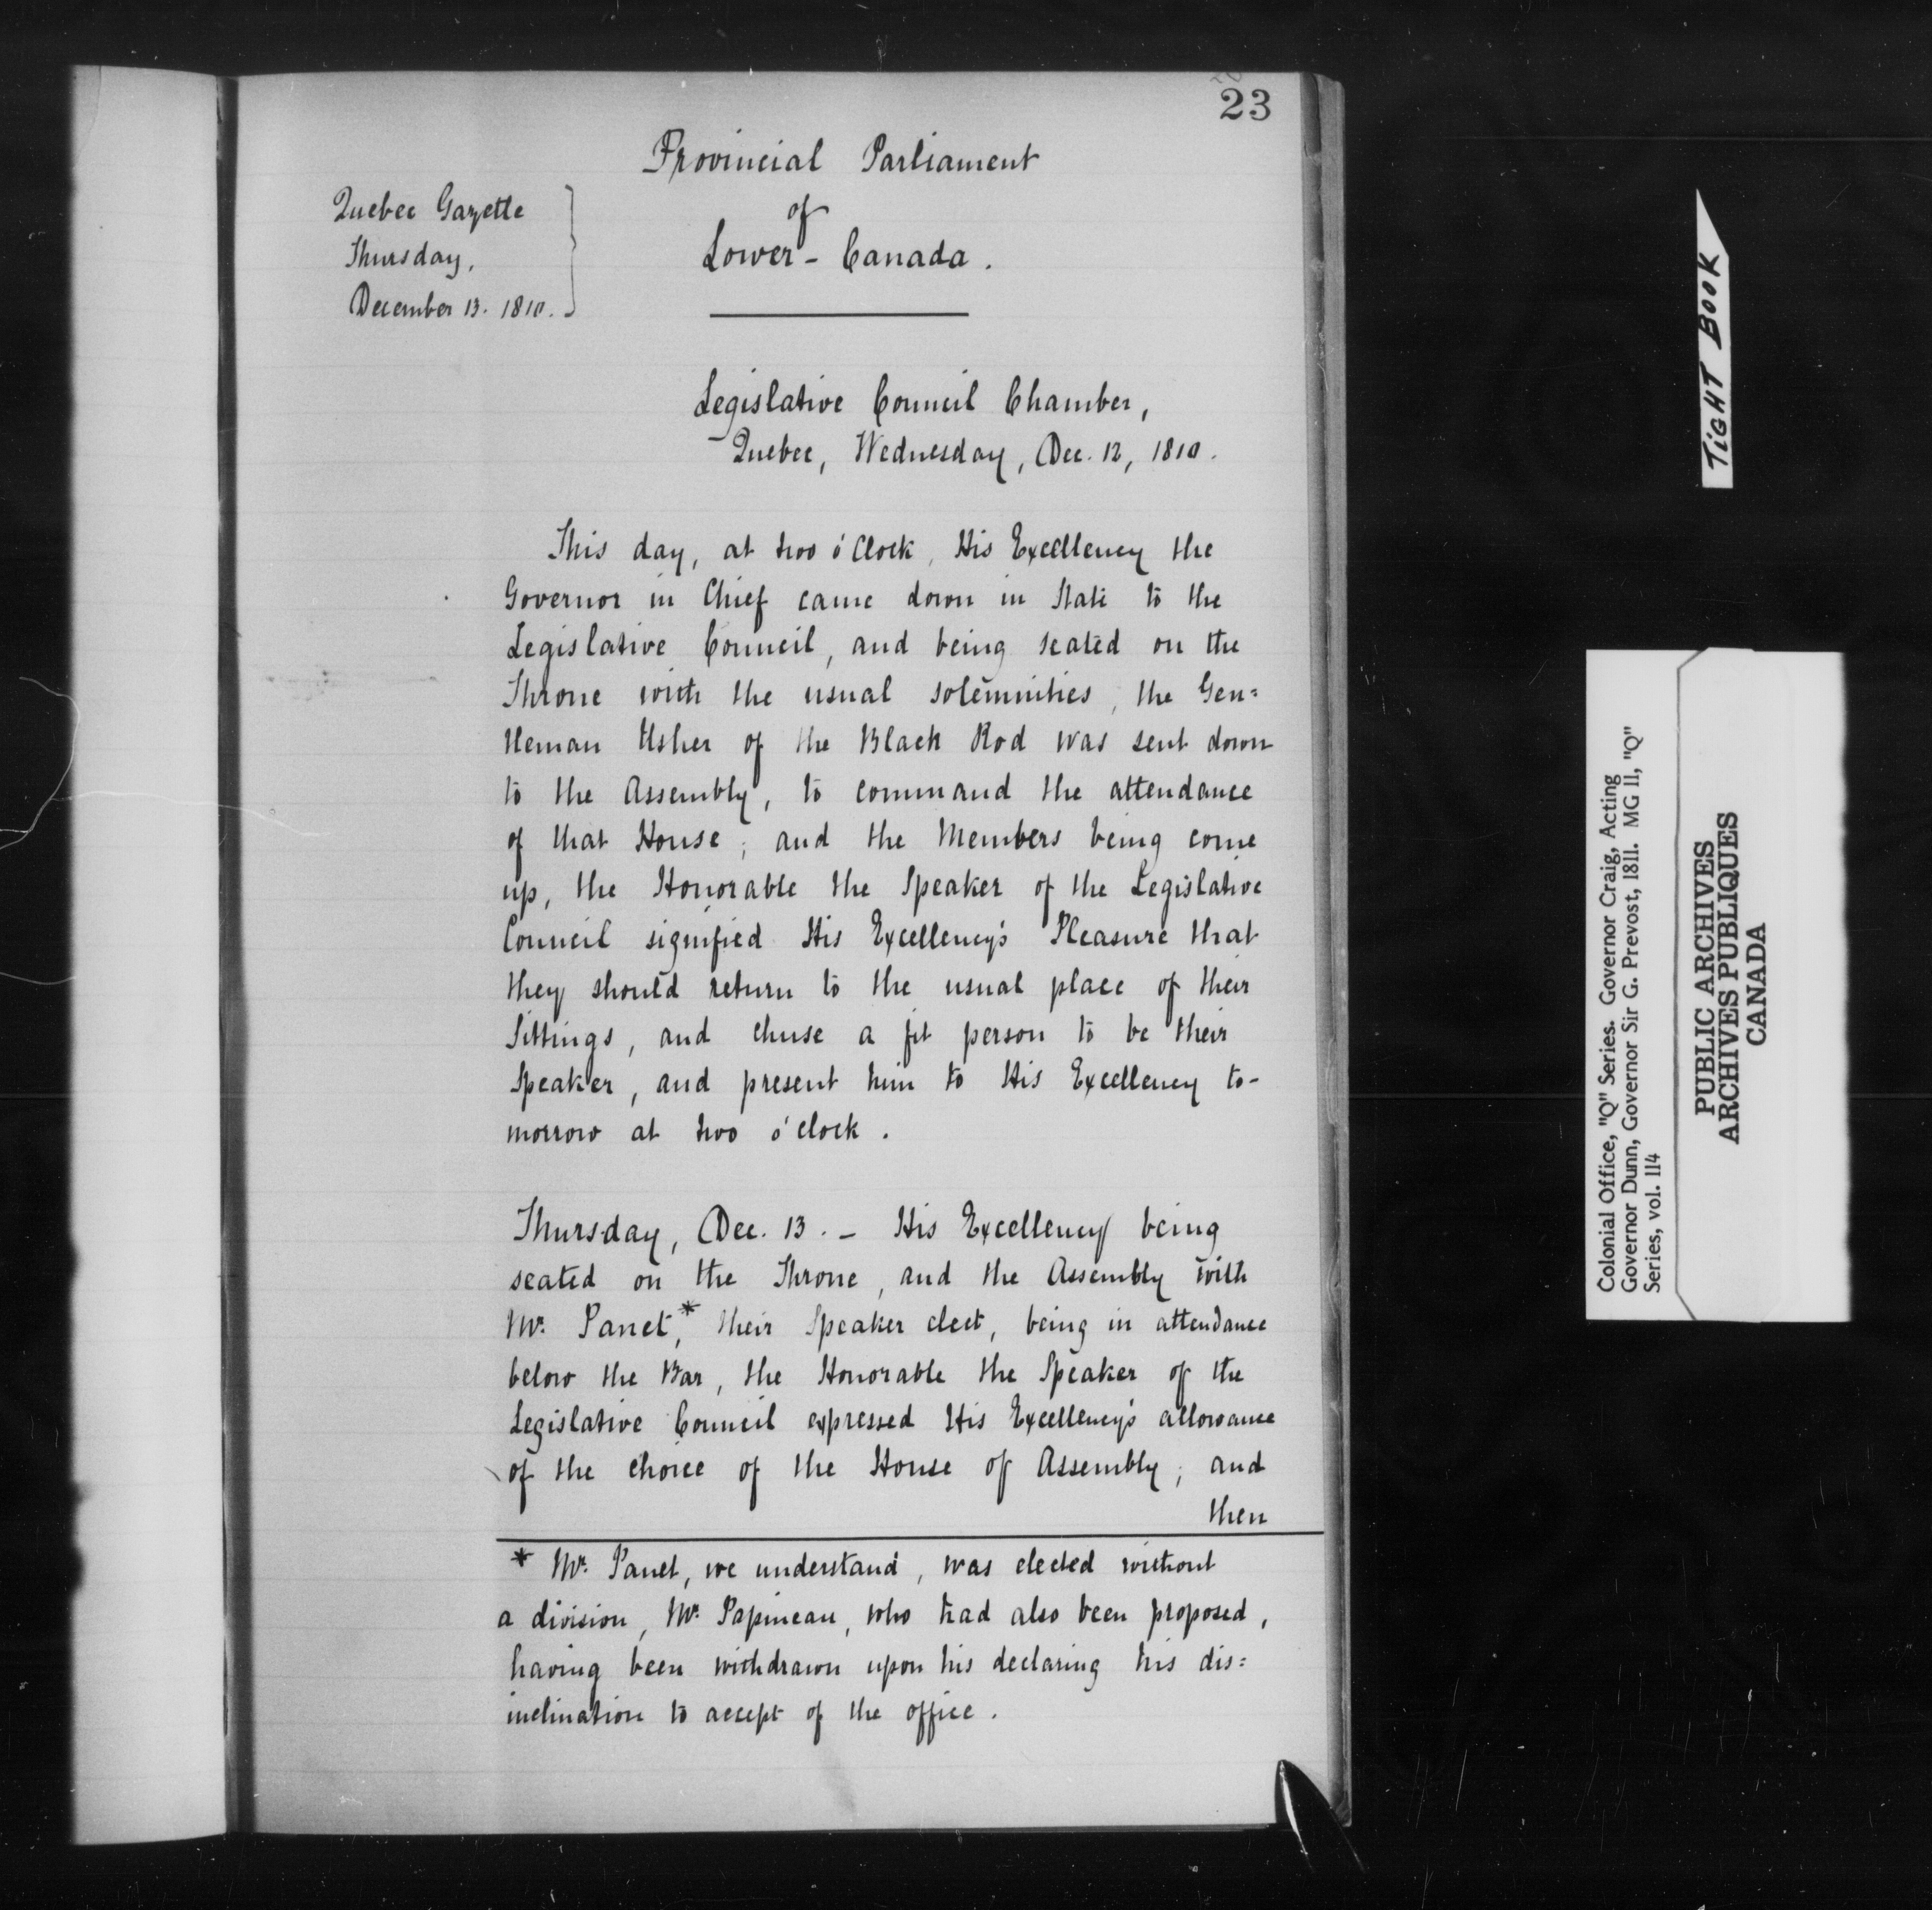 23
Provincial Parliament
of
Lower - Canada.
Quebec Gazette
Thursday,
December 13. 1810.
Legislative Council Chamber,
Quebec, Wednesday, Dec. 12, 1810.
This day, at two o'Clock, His Excellency the
Governor in Chief came down in State to the
Legislative Council, and being seated on the
Throne with the usual solemnities, the Gen=
tleman Usher of the Black Rod was sent down
to the Assembly, to command the attendance
of that House; and the Members being come
up, the Honorable the Speaker of the Legislative
Council signified His Excellency's Pleasure that
they should return to the usual place of their
Sittings, and chuse a fit person to be their
Speaker, and present him to His Excellency to-
morrow at two o'clock.
Thursday, Dec. 13. - His Excellency being
seated on the Throne, and the Assembly with
Mr. Panet,* their Speaker elect, being in attendance
below the Bar, the Honorable the Speaker of the
Legislative Council expressed His Excellency's allowance
of the choice of the House of Assembly; and
then
* Mr. Panet, we understand, was elected without
a division, Mr. Papineau, who had also been proposed,
having been withdrawn upon his declaring his dis=
inclination to accept of the office.
TIGHT BOOK
Colonial Office, "Q" Series. Governor Craig, Acting
Governor Dunn, Governor Sir G. Prevost, 1811. MG 11, "Q"
Series, vol. 114
PUBLIC ARCHIVES
ARCHIVES PUBLIQUES
CANADA